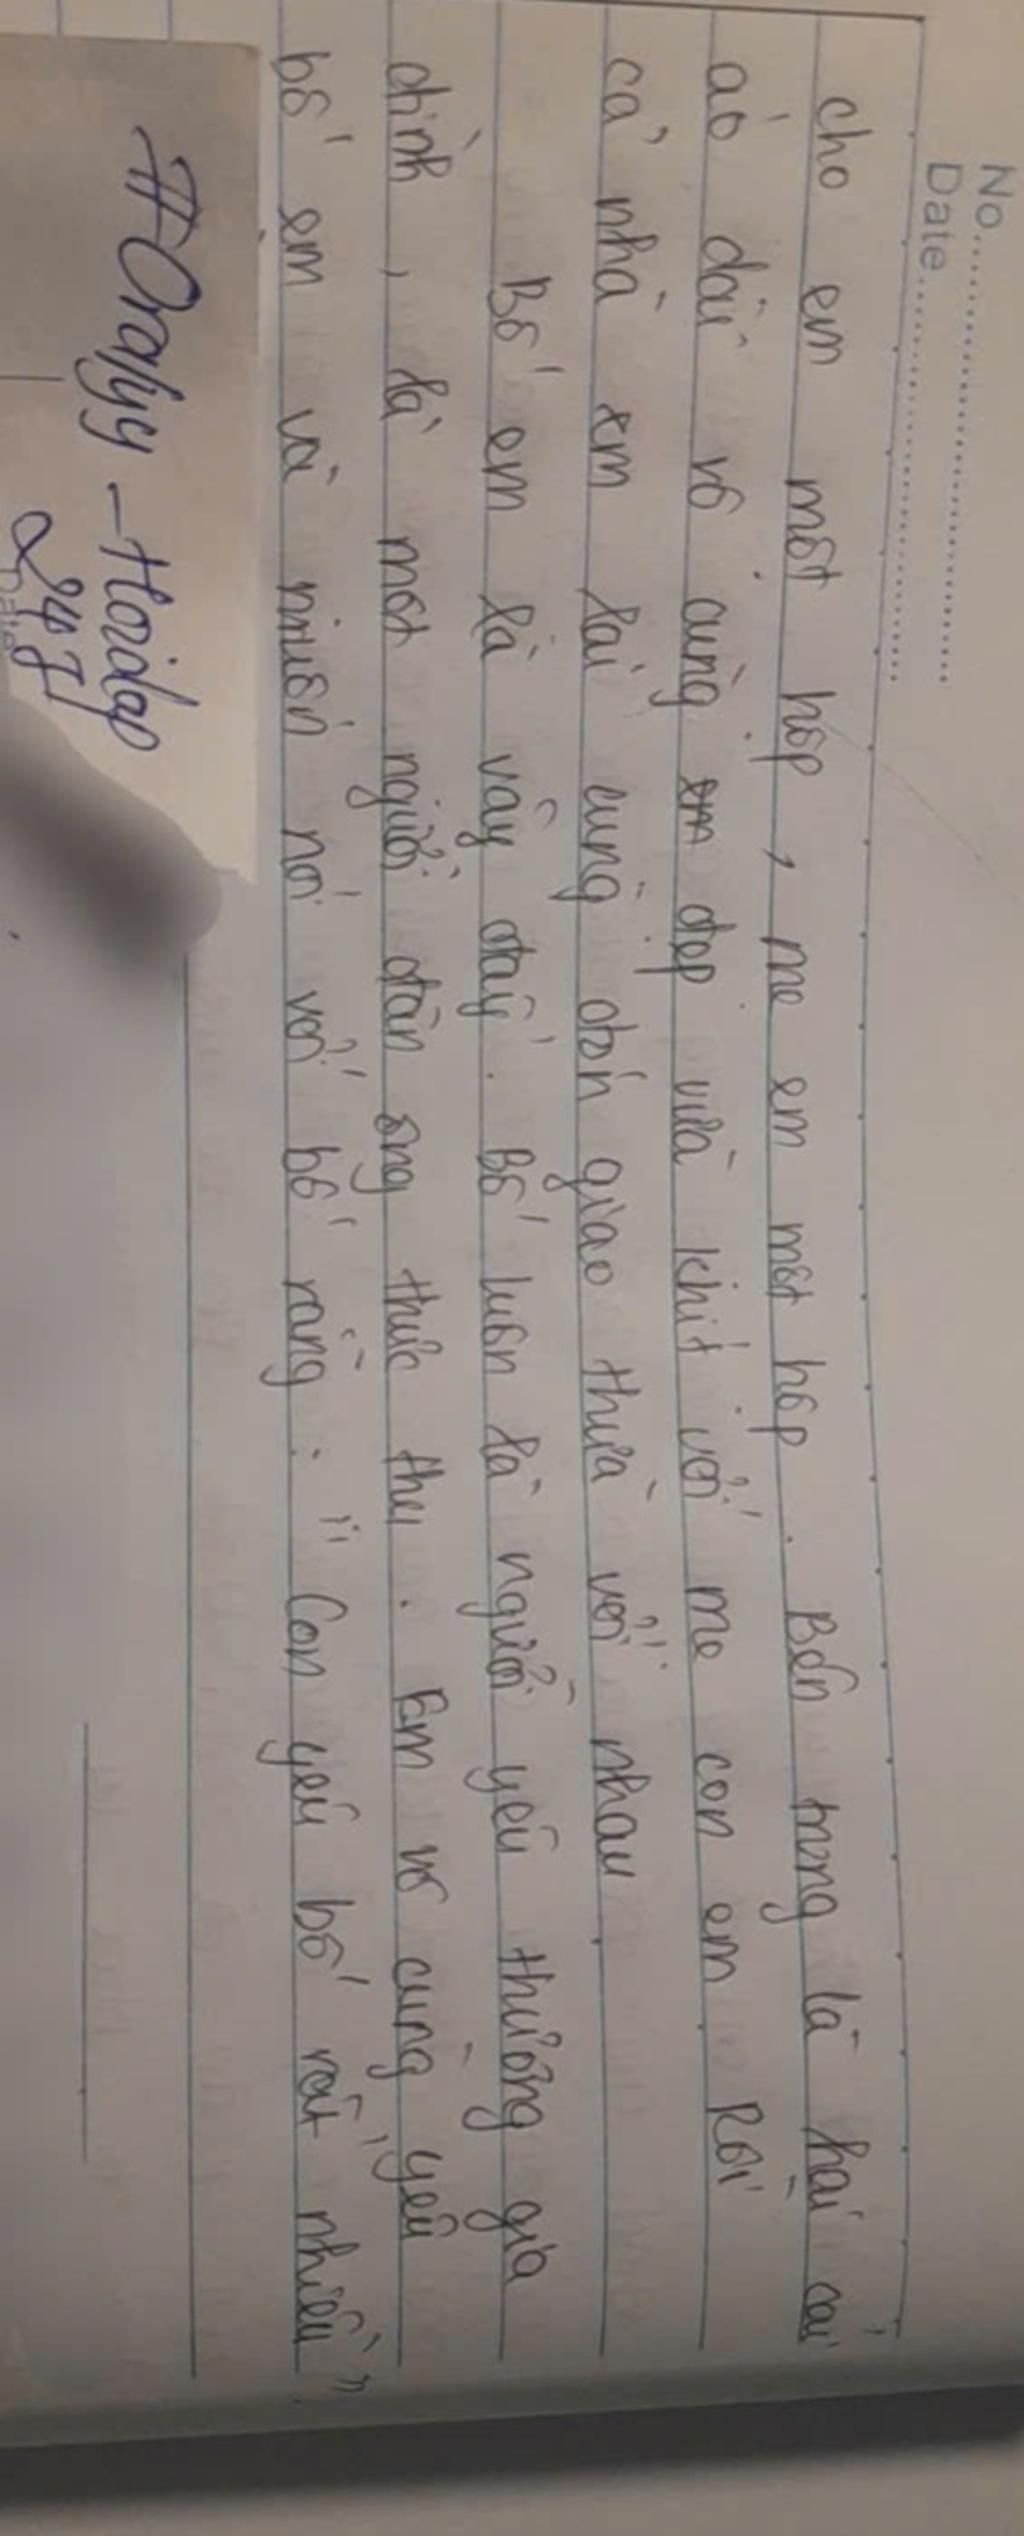 No
Date
cho em một hộp, mẹ em một hộp. Bên trong là hai cái
áo dài vô cùng đẹp vừa khít với mẹ con em. Rồi
cả nhà em lại cùng đón giao thừa với nhau.
Bố em là vậy đấy. Bố luôn là người yêu thương gia
đình, là một người đàn ông thức thụ. Em vô cùng yêu
bố em và muốn nói với bố rằng: "Con yêu bố rất nhiều".
-Hoidap
247